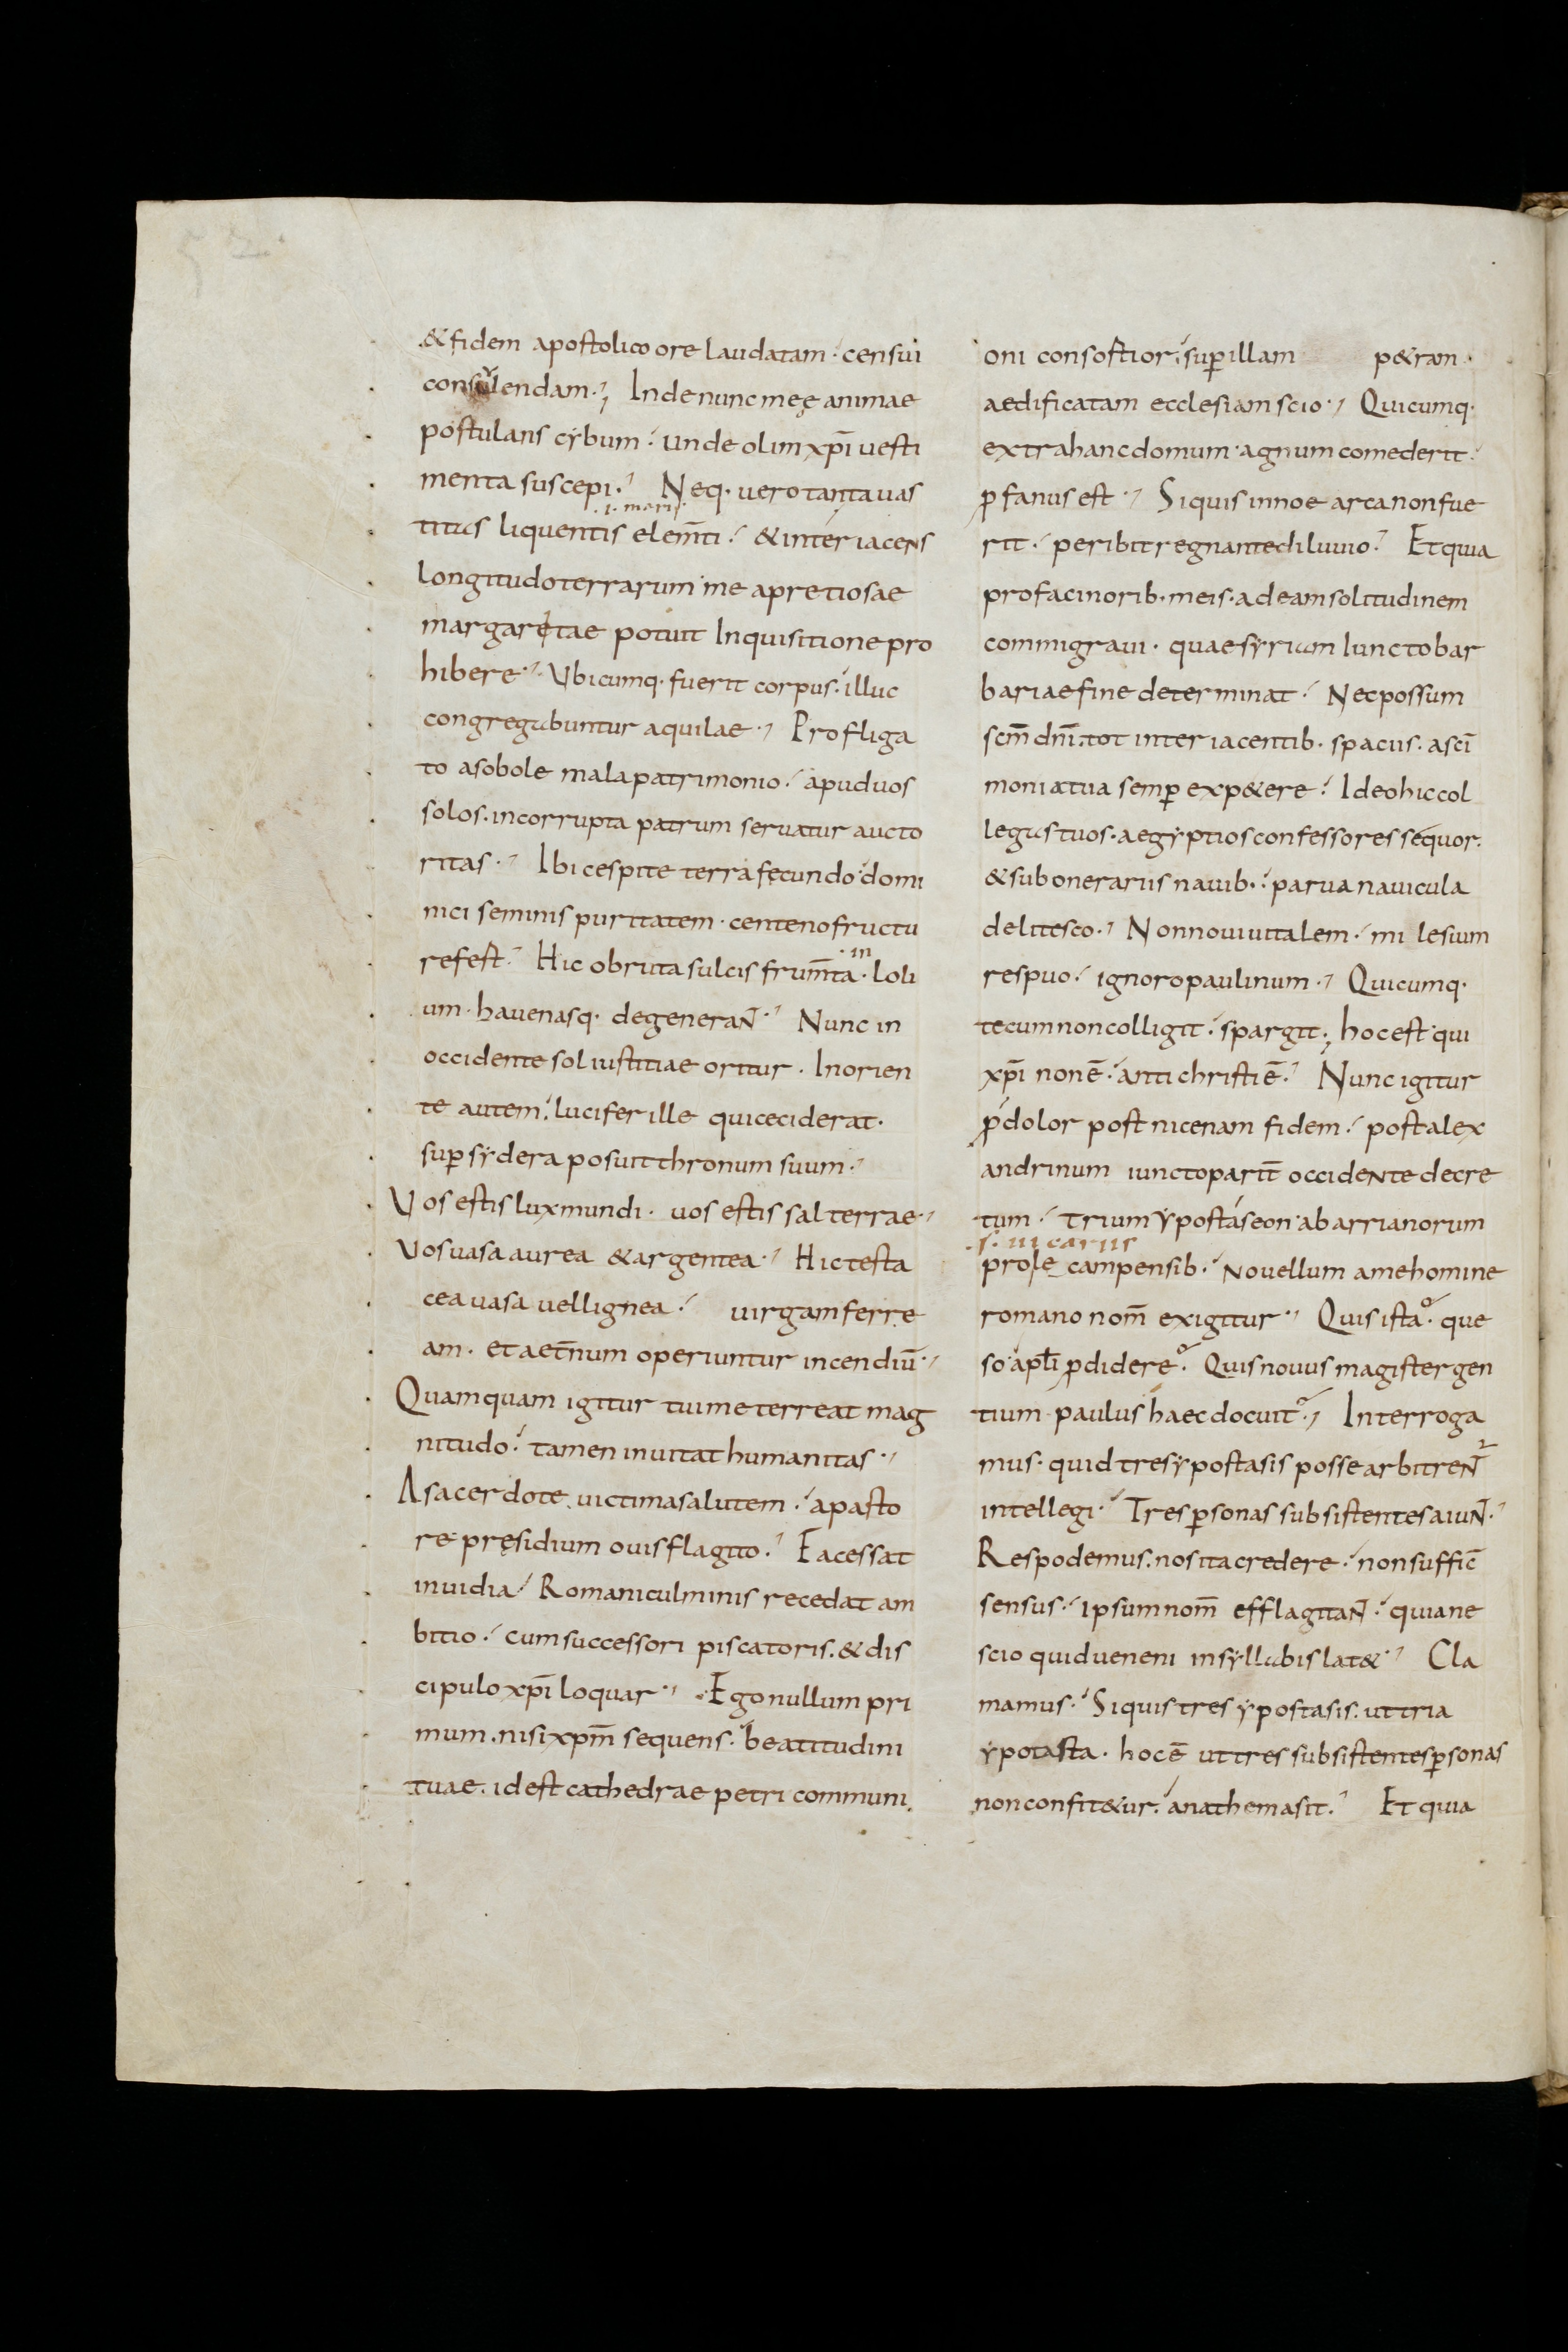 52.
&fidem apostolico ore laudatam · censui
consulendam·, Inde nunc meę animae
postulans cybum· unde olim xp̄i uesti
menta suscepi· Neq· uero tanta uas
.i. maris
titas liquentis elem̄ti· & interiacens
longitudo terrarum· me a pretiosae
margaretae potuit Inquisitione pro
hibere· Ubicumq· fuerit corpus· illuc
congregabuntur aquilae· Profliga
to a sobole mala patrimonio· apud uos
solos· incorrupta patrum seruatur aucto
ritas· Ibi cespite terra fecundo· domi
nici seminis puritatem· centeno fructu
in
refest· Hic obruta sulcis frum̄ta· loli
um· hauenasq· degeneraN̄· Nunc in
occidente sol iustitiae oritur· In orien
te autem· lucifer ille qui ceciderat·
sup̱ sydera posuit thronum suum·
Vos estis lux mundi· uos estis sal terrae·
Vos uasa aurea & argentea· Hic testa
cea uasa uel lignea· uirgam ferre
am· et aet̄num operiuntur incendiū·
Quamquam igitur tui me terreat mag
nitudo· tamen inuitat humanitas·
A sacerdote uictima salutem· a pasto
re pręsidium ouis flagito· Facessat
inuidia· Romani culminis recedat am
bitio· cum successori piscatoris· & dis
cipulo xp̄i loquar· Ego nullum pri
mum· nisi xpm̄ sequens· beatitudini
tuae· id est cathedrae petri communi
oni consoftior· sup̱ illam p&ram·
aedificatam ecclesiam scio· Quicumq·
extra hanc domum· agnum comederit·
ꝓfanus est· Si quis in noe arca non fue
rit· peribit regnante diluuio· Et quia
pro facinorib· meis· ad eam solitudinem
commigraui· quae syriam Iuncto bar
bariae fine determinat· Nec possum
scm̄ dn̄i· tot interiacentib· spaciis· a scī
monia tua semp̱ exp&ere· Ideo hic col
legas tuos· aegyptios confessores sequor·
& sub onerariis nauib·· parua nauicula
delitesco· Non noui uitalem· mi lesium
respuo· ignoro paulinum· Quicumq·
tecum non colligit· spargit· hoc est· qui
xp̄i non ē· antichristi ē· Nunc igitur
ꝓ dolor post nicenam fidem· post alex
andrinum iuncto parit̄ occideNte decre
tum· trium ypostáseon· ab arrianorum
s. in cariis
prole campensib· Nouellum a me homine
romano nom̄ exigitur· Quis ista· que
so· apl̄i p̱didere· Quis nouus magister gen
tium· paulus haec docuit· Interroga
mus· quid tres ypostasis posse arbitreN̄
intellegi· Tres p̱sonas subsistentes aiuN̄·
Respodemus· nos ita credere· non suffic̄
sensus· ipsum nom̄ efflagitaN̄· quia ne
scio quid ueneni in syllabis lat&· Cla
mamus· Si quis tres ypostasis· ut tria
ypotasta· hoc ē ut tres subsistentes p̱sonas
non confit&ur· anathema sit· Et quia